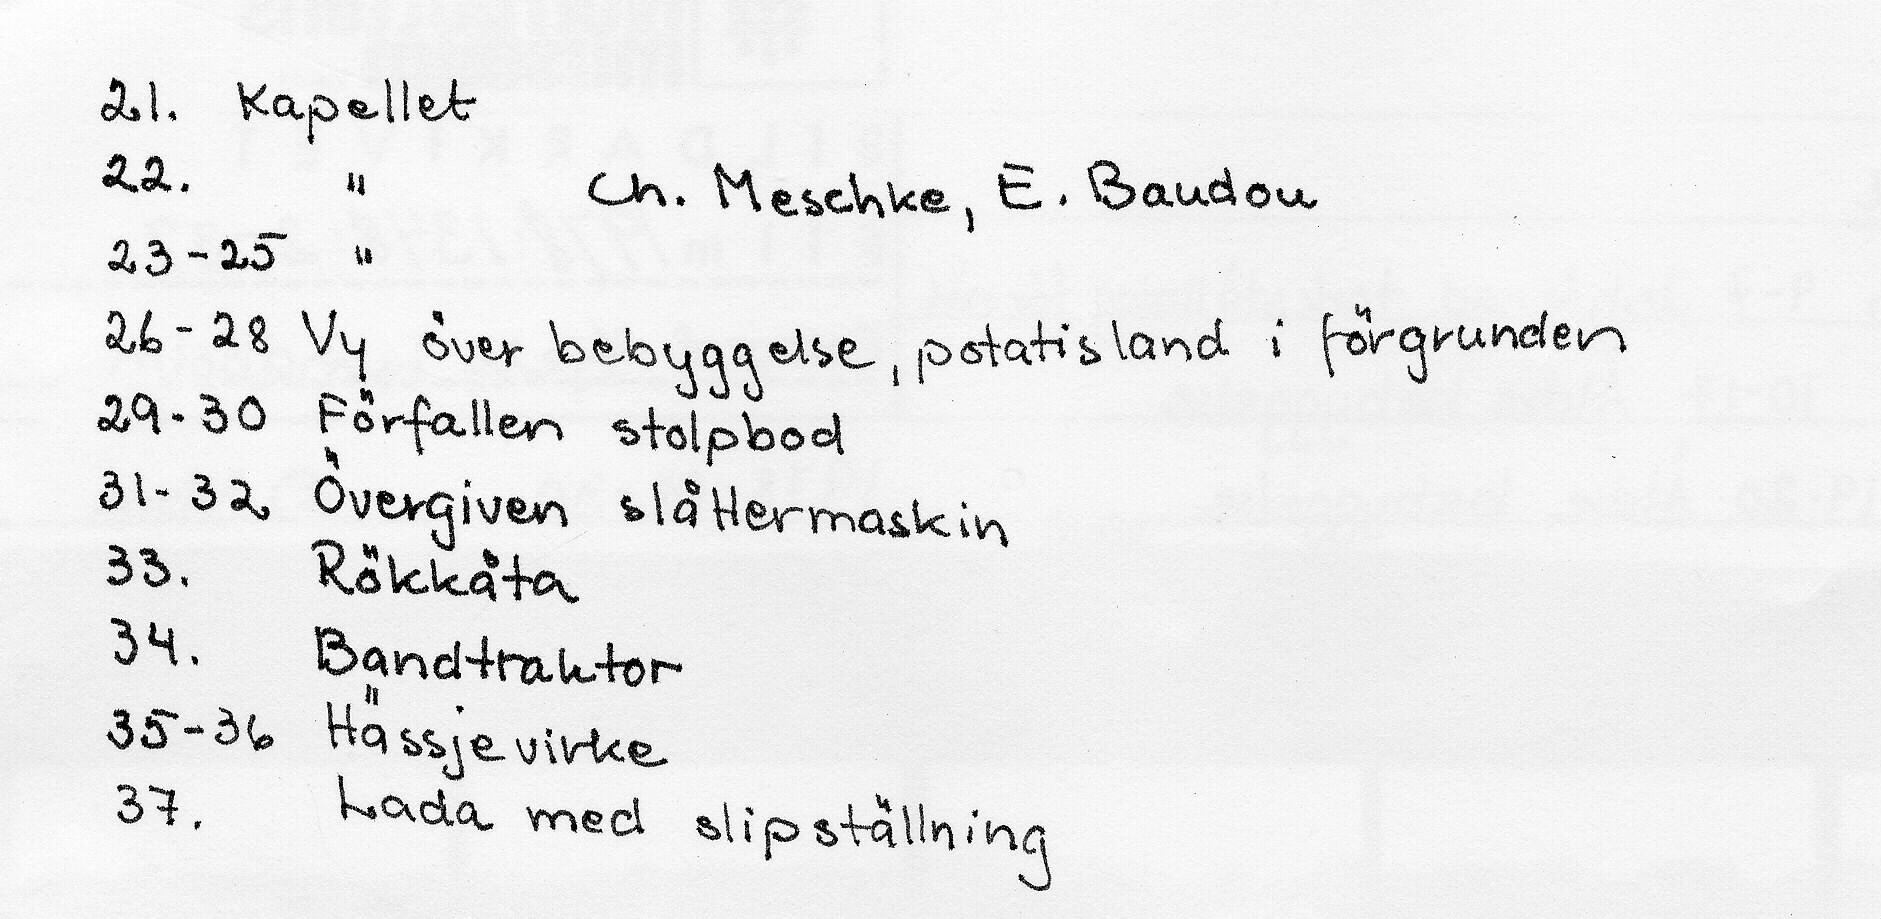 21. Kapellet
22. " Ch. Meschke, E. Baudou
23-25 "
26-28 Vy över bebyggelse, potatisland i förgrunden
29-30 Förfallen stolpbod
31-32 Övergiven slåttermaskin
33. Rökkåta
34. Bandtraktor
35-36 Hässjevirke
37. Lada med slipställning